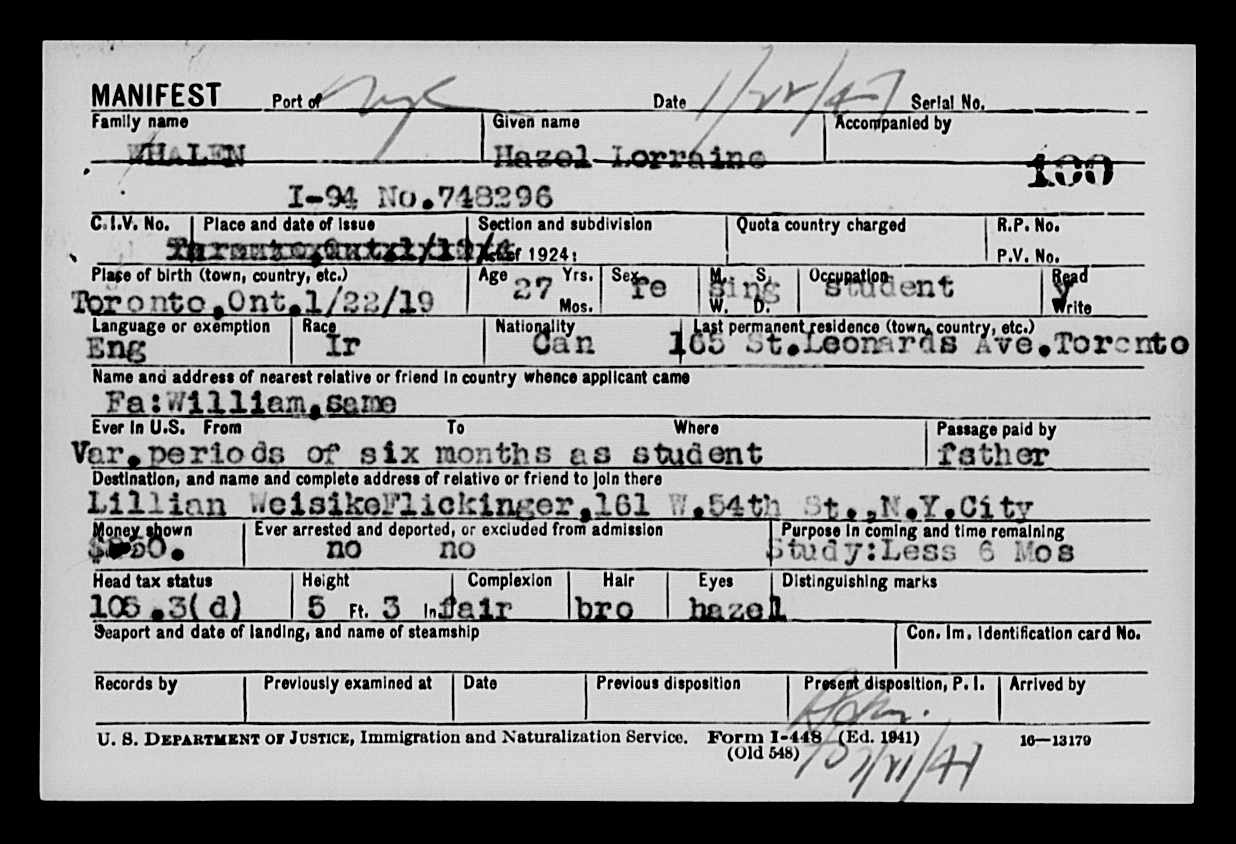 MANIFEST Port of NYC Date 1/22/47 Serial No.
Family name Given name Accompanied by
WHALEN Hazel Lorraine
100
I-94 No.748296
C.I.V. No. Place and date of issue Section and subdivision Quota country charged R.P. No.
of 1924: P.V. No.
Place of birth (town, country, etc.) Age Yrs. Sex M. S. Occupation Read
Toronto,Ont.1/22/19 27 fe sing student y
Mos. W. D. Write
Language or exemption Race Nationality Last permanent residence (town, country, etc.)
Eng Ir Can 165 St.Leonards Ave.Toronto
Name and address of nearest relative or friend in country whence applicant came
Fa:William,same
Ever in U.S. From To Where Passage paid by
Var.periods of six months as student father
Destination, and name and complete address of relative or friend to join there
Lillian WeisikeFlickinger,161 W.54th St.,N.Y.City
Money shown Ever arrested and deported, or excluded from admission Purpose in coming and time remaining
no no Study:Less 6 Mos
Head tax status Height Complexion Hair Eyes Distinguishing marks
105.3(d) 5 Ft. 3 In. fair bro hazel
Seaport and date of landing, and name of steamship Con. Im. Identification card No.
Records by Previously examined at Date Previous disposition Present disposition, P. I. Arrived by
U. S. DEPARTMENT OF JUSTICE, Immigration and Naturalization Service. Form I-448 (Ed. 1941) 16—13179
(Old 548)